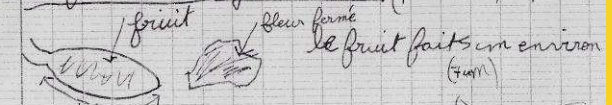 fruit
fleur fermé
le fruit fait 5 cm environ
(7cm)